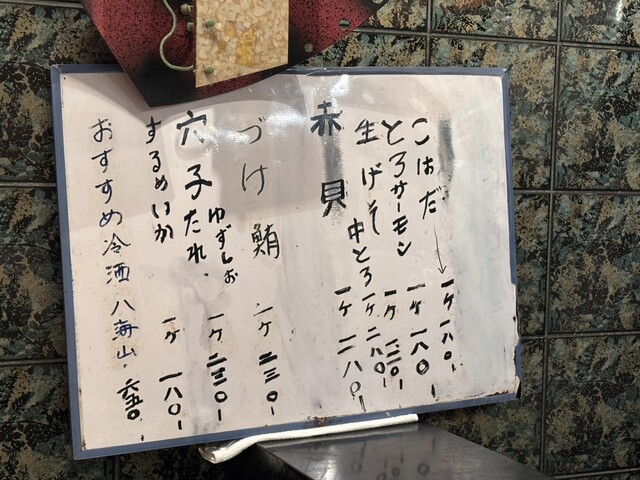 こはだ 一ケ 一八〇.-
とろサーモン 一ケ 一八〇-
生げそ 一ケ 一三〇-
中とろ 一ケ 二八〇-
赤貝 一ケ 二八〇-
づけ鮪 一ケ 二三〇-
穴子たれ、ゆずしお 一ケ 二三〇-
するめいか 一ケ 一八〇-
おすすめ冷酒 八海山. 六五〇.-